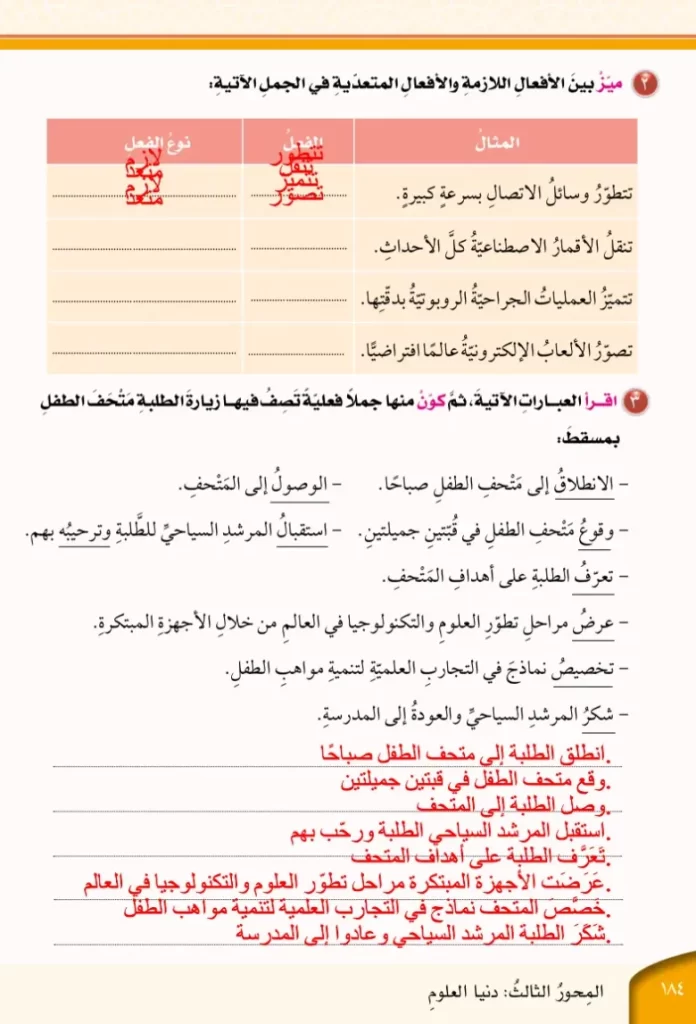 ٢ ميّزْ بينَ الأفعالِ اللازمةِ والأفعالِ المتعدّيةِ في الجملِ الآتيةِ:
المثالُ الفعلُ نوعُ الفعلِ
تتطور لازم
تنقل متعد
تتميز لازم
تصور متعد
تتطوّرُ وسائلُ الاتصالِ بسرعةٍ كبيرةٍ.
تنقلُ الأقمارُ الاصطناعيّةُ كلَّ الأحداثِ.
تتميّزُ العملياتُ الجراحيّةُ الروبوتيّةُ بدقّتِها.
تصوّرُ الألعابُ الإلكترونيّةُ عالمًا افتراضيًّا.
٣ اقرأ العباراتِ الآتيةَ، ثمَّ كوّنْ منها جملاً فعليّةً تَصِفُ فيها زيارةَ الطلبةِ مَتْحَفَ الطفلِ
بمسقطَ:
- الانطلاقُ إلى مَتْحفِ الطفلِ صباحًا. - الوصولُ إلى المَتْحفِ.
- وقوعُ مَتْحفِ الطفلِ في قُبّتينِ جميلتينِ. - استقبالُ المرشدِ السياحيِّ للطَّلبةِ وترحيبُه بهم.
- تعرّفُ الطلبةِ على أهدافِ المَتْحفِ.
- عرضُ مراحلِ تطوّرِ العلومِ والتكنولوجيا في العالمِ من خلالِ الأجهزةِ المبتكرةِ.
- تخصيصُ نماذجَ في التجاربِ العلميّةِ لتنميةِ مواهبِ الطفلِ.
- شكرُ المرشدِ السياحيِّ والعودةُ إلى المدرسةِ.
.انطلق الطلبة إلى متحف الطفل صباحًا
.وقع متحف الطفل في قبتين جميلتين
.وصل الطلبة إلى المتحف
.استقبل المرشد السياحي الطلبة ورحّب بهم
.تَعَرَّف الطلبة على أهداف المتحف
.عَرَضَت الأجهزة المبتكرة مراحل تطوّر العلوم والتكنولوجيا في العالم
.خَصَّصَ المتحف نماذج في التجارب العلمية لتنمية مواهب الطفل
.شَكَرَ الطلبة المرشد السياحي وعادوا إلى المدرسة
المِحورُ الثالثُ: دنيا العلومِ ١٨٤